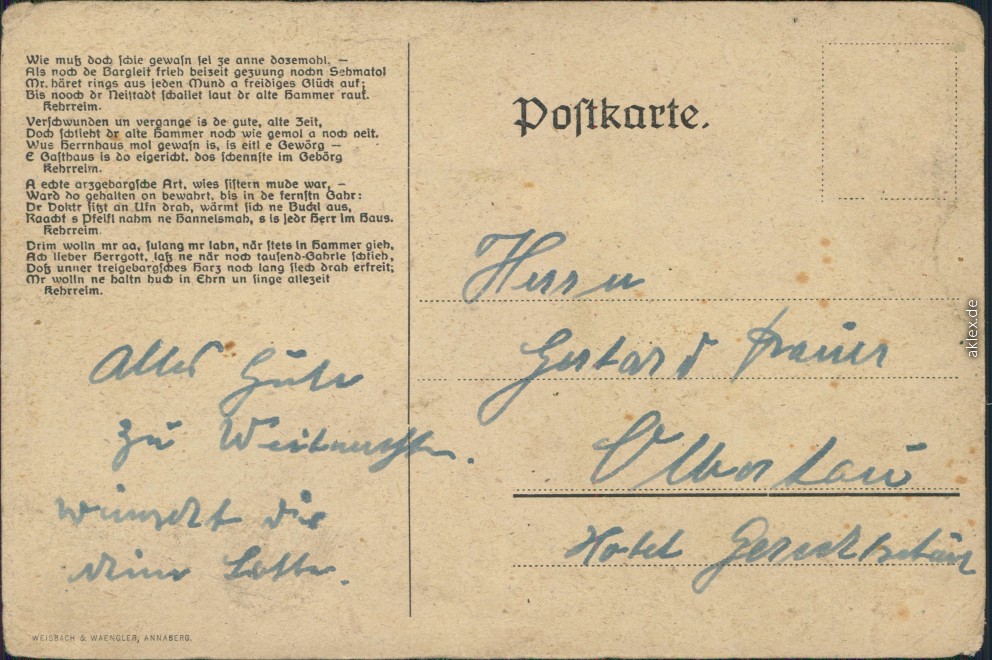 Wie muß doch schie gewasn sei ze anne dozemohl, —
Als noch de Bargleit frieh beizeit gezuung nochn Schmatol
Mr. häret rings aus jeden Mund a freidiges Glück auf;
Bis nooch dr Neistadt schallet laut dr alte Hammer rauf.
Kehrreim.
Verschwunden un vergange is de gute, alte Zeit,
Doch schtieht dr alte Hammer noch wie gemol a noch heit.
Wus Herrnhaus mol gewasn is, is eitl e Gewörg —
E Gasthaus is do eigericht, dos schennste im Gebörg
Kehrreim.
A echte arzgebargsche Art, wies sistern mude war, —
Ward do gehalten on bewahrt, bis in de fernstn Gahr:
Dr Doktr sitzt an Ufn drah, wärmt sich ne Buckl aus,
Raacht s Pfeifl nahm ne Hannelsmah, s is jedr Herr im Haus.
Kehrreim.
Drim wolln mr aa, sulang mr labn, när stets in Hammer gieh,
Ach lieber Herrgott, laß ne när noch tausend-Gahrle schtieh,
Doß unner treigebargsches Harz noch lang siech drah erfreit;
Mr wolln ne haltn huch in Ehrn un singe allezeit
Kehrreim.
Alles Gute
zu Weihnachten.
wünscht dir
deine Lotte.
WEISBACH & WAENGLER, ANNABERG.
Postkarte.
Herrn
Gerhard
Olbernhau
Hotel
aklex.de